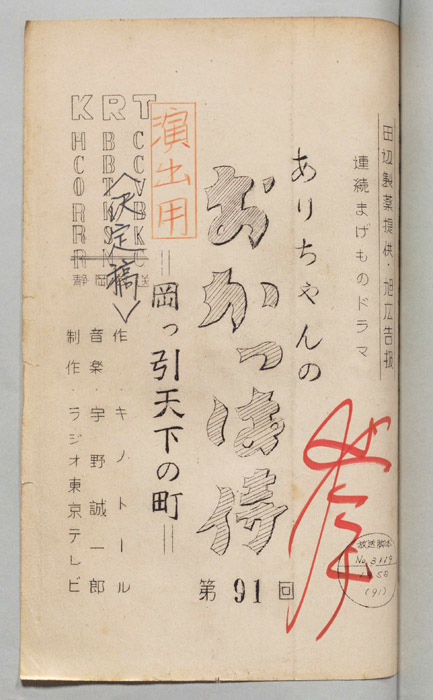 田辺製薬提供・旭広告扱
連続まげものドラマ
ありちゃんの
おかっぱ侍
第91回
演出用
=岡っ引天下の町=
〈決定稿〉
KRT
HBC
CBC
OTV
RKB
RSK
作・キノトール
音楽・宇野誠一郎
制作・ラジオ東京テレビ
放送脚本
No.3119
(91)